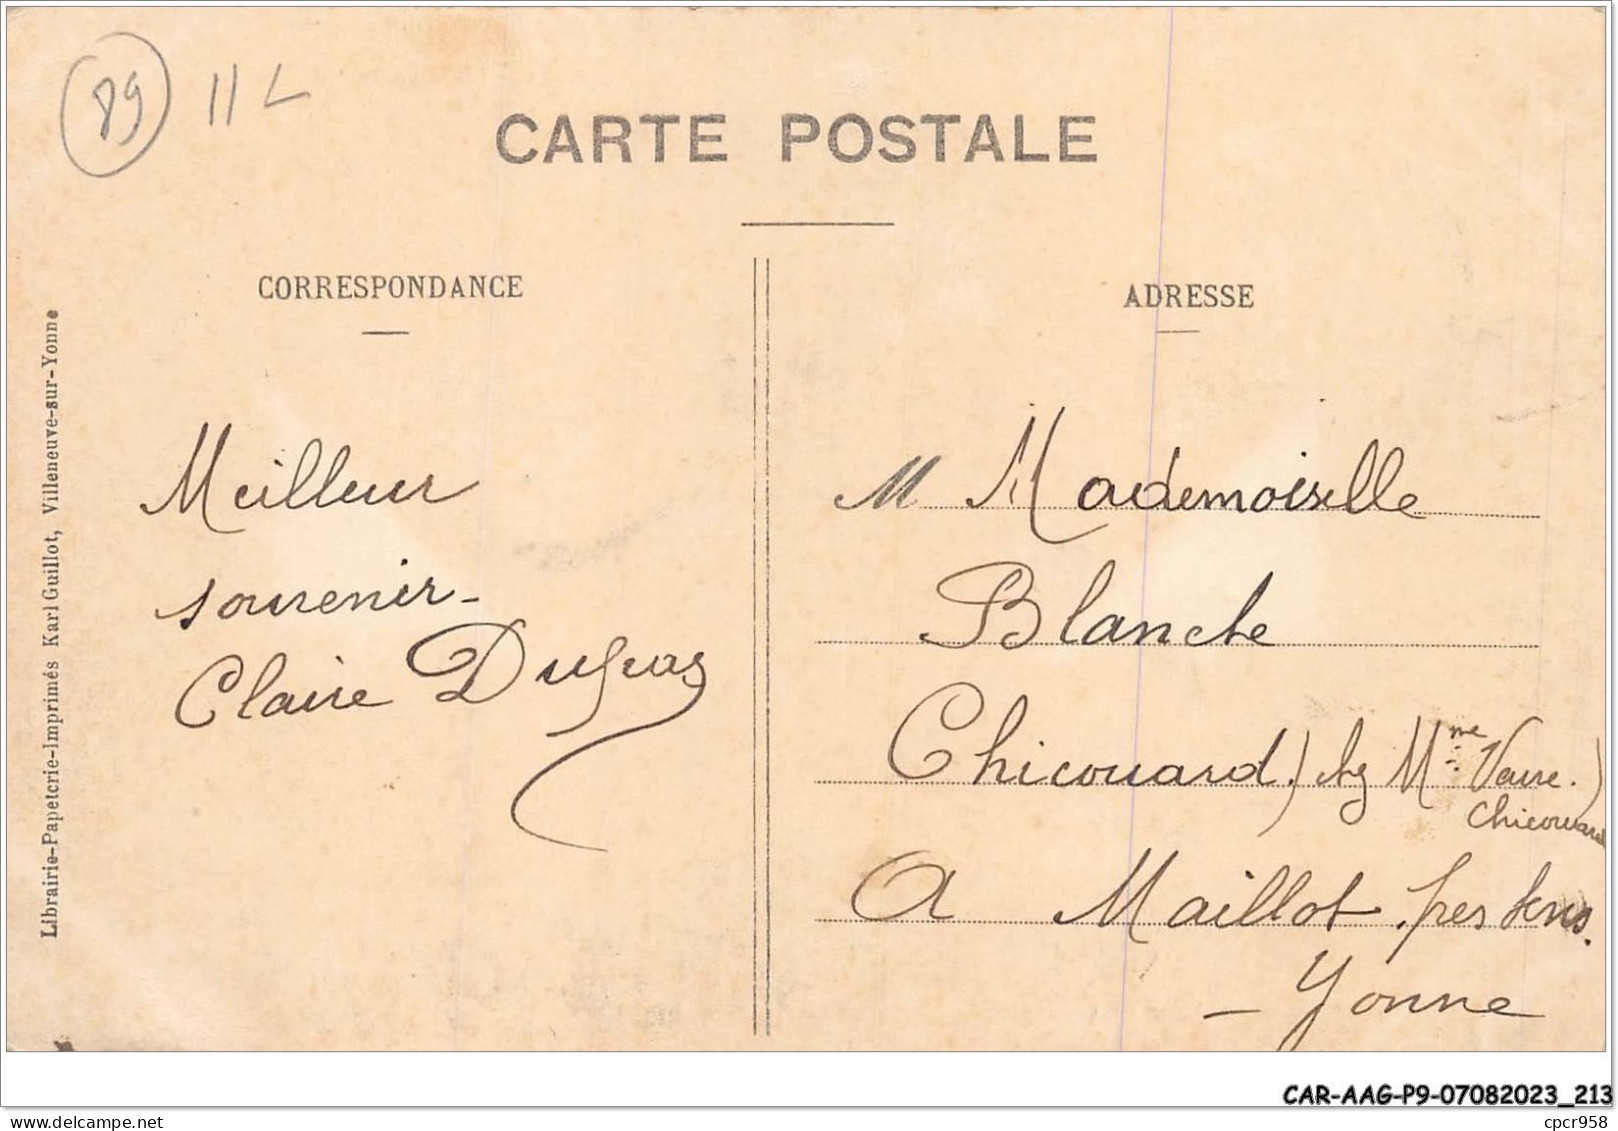 89 11 L
CARTE POSTALE
CORRESPONDANCE
ADRESSE
Librairie-Papeterie-Imprimés Karl Guillot, Villeneuve-sur-Yonne
Meilleur
souvenir
Claire
M Mademoiselle
Blanche
Chicouard) chez Mme
Chicouard
A Maillot près Sens.
- Yonne
CAR-AAG-P9-07082023_213
delcampe.net
cpcr958